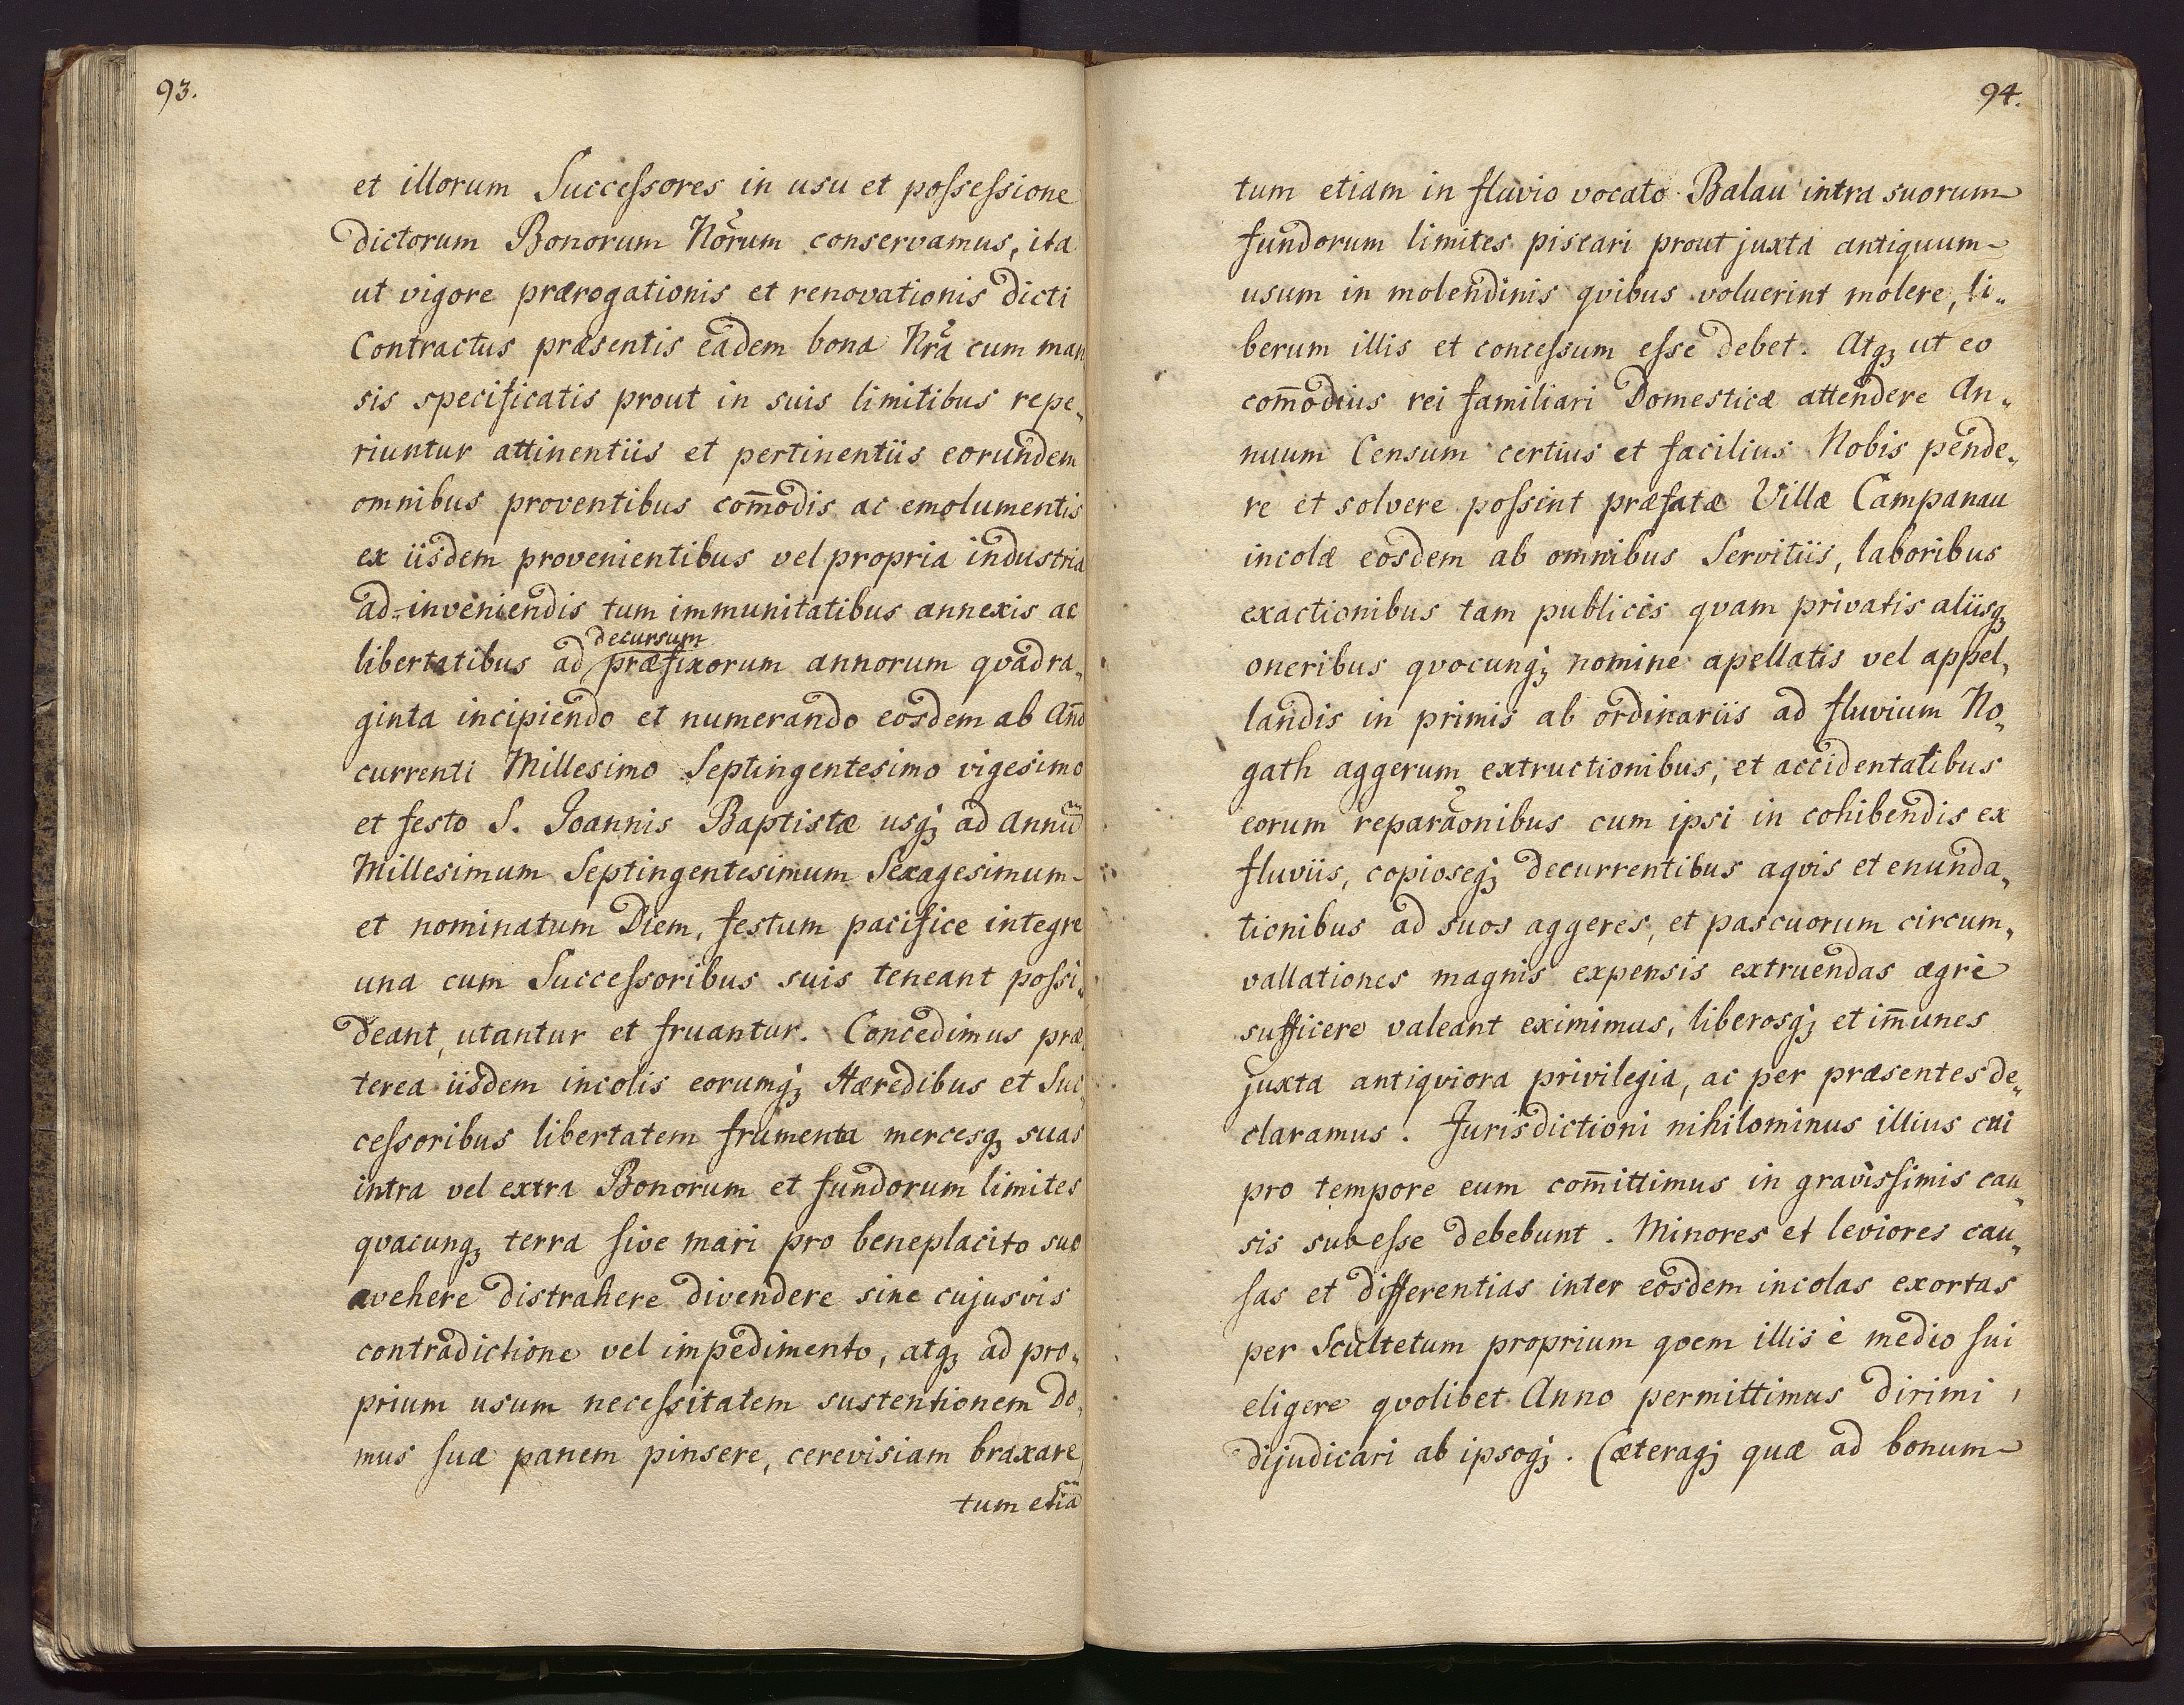 93.
et illorum Successores in usu et possessione
dictorum Bonorum Nõrum conservamus, ita
ut vigore prærogationis et renovationis dicti
Contractus præsentis eadem bona Nr̃a cum man
sis specificatis prout in suis limitibus repe„
riuntur attinentiis et pertinentiis eorundem
omnibus proventibus com̄odis ac emolumentis
ex iisdem provenientibus vel propria industria
ad-inveniendis tum immunitatibus annexis ac
decursum
libertatibus ad præfixorum annorum qvadra„
ginta incipiendo et numerando eosdem ab Añо
currenti Millesimo Septingentesimo vigesimo
et festo S. Joannis Baptistæ usq; ad Annũ
Millesimum Septingentesimum Sexagesimum
et nominatum Diem, festum pacifice integre
una cum Successoribus suis teneant possi„
deant, utantur et fruantur. Concedimus præ„
terea iisdem incolis eorumq; Hæredibus et Suc„
cessoribus libertatem frumenta mercesq; suas
intra vel extra Bonorum et fundorum limites
qvacunq; terra sive mari pro beneplacito suo
avehere distrahere divendere sine cujusvis
contradictione vel impedimento, atq; ad pro„
prium usum necessitatem sustentionem do„
mus suæ panem pinsere, cerevisiam braxare
tum etiã
94.
tum etiam in fluvio vocato Balau intra suorum
fundorum limites piscari prout juxta antiquum
usum in molendinis qvibus voluerint molere, li„
berum illis et concessum esse debet. Atq; ut eo
com̄odius rei familiari Domesticæ attendere An„
nuum Censum certius et facilius Nobis pende„
re et solvere possint præfatæ Villæ Campanau
incolæ eosdem ab omnibus Servitiis, laboribus
exactionibus tam publicis qvam privatis aliisq;
oneribus qvocunq; nomine apellatis vel appel„
landis in primis ab ordinariis ad fluvium No„
gath aggerum extructionibus, et accidentalibus
eorum reparãonibus cum ipsi in cohibendis ex
fluviis, copioseq; decurrentibus aqvis et enunda„
tionibus ad suos aggeres, et pascuorum circum„
vallationes magnis expensis extruendas ægrè
sufficere valeant eximimus, liberosq; et im̄unes
juxta antiqviora privilegia, ac per præsentes de„
claramus. Jurisdictioni nihilominus illius cui
pro tempore eum com̄ittimus in gravissimis cau„
sis subesse debebunt. Minores et leviores cau„
sas et differentias inter eosdem incolas exortas
per Scultetum proprium qvem illis è medio sui
eligere qvolibet Anno permittimus dirimi,
dijudicari ab ipsoq;. Cæteraq; quæ ad bonum